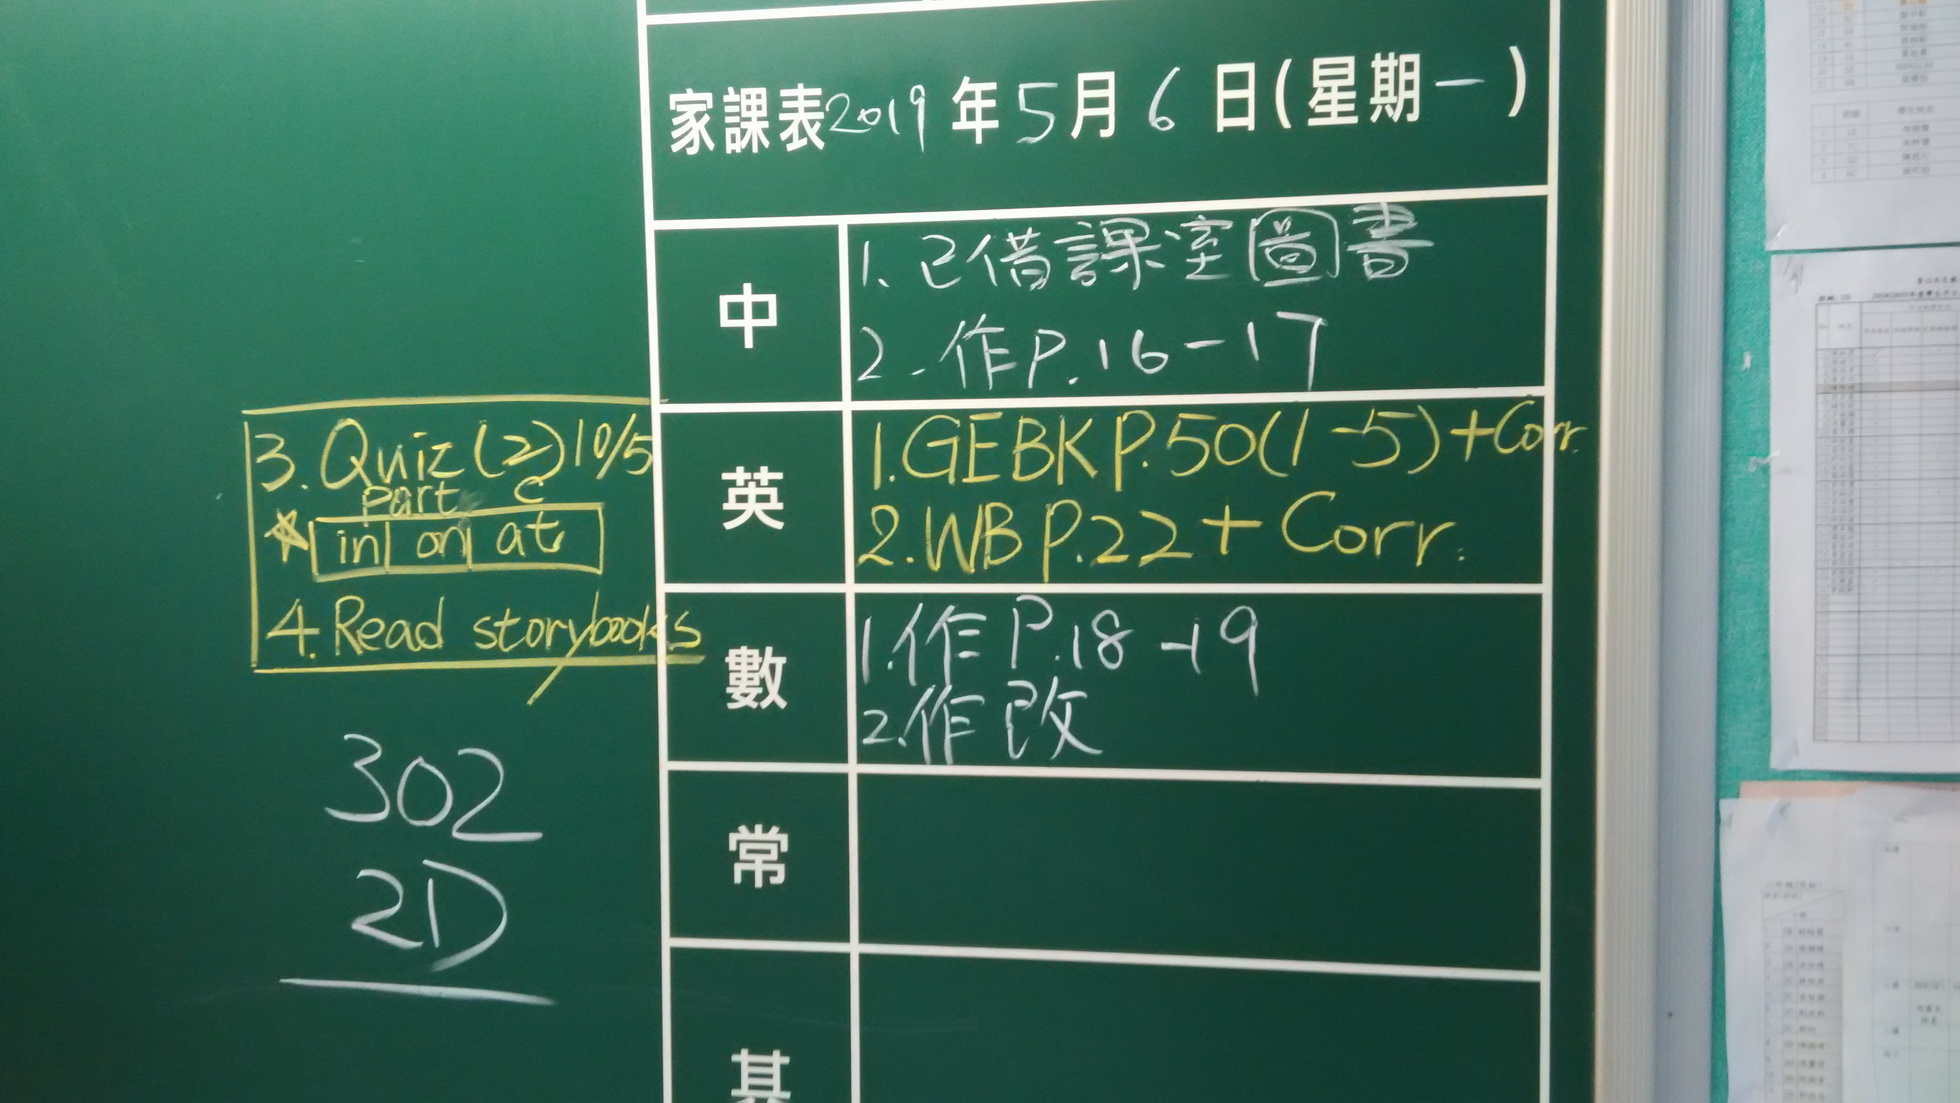 家課表2019年5月6日(星期一)
中
1.已借課室圖書
2.作P.16-17
英
1.GEBK P.50(1-5)+Corr.
2.WB P.22+Corr.
3.Quiz(2)10/5
part C
*in on at
4.Read storybooks
數
1.作P.18-19
2.作改
常
其
302
2D